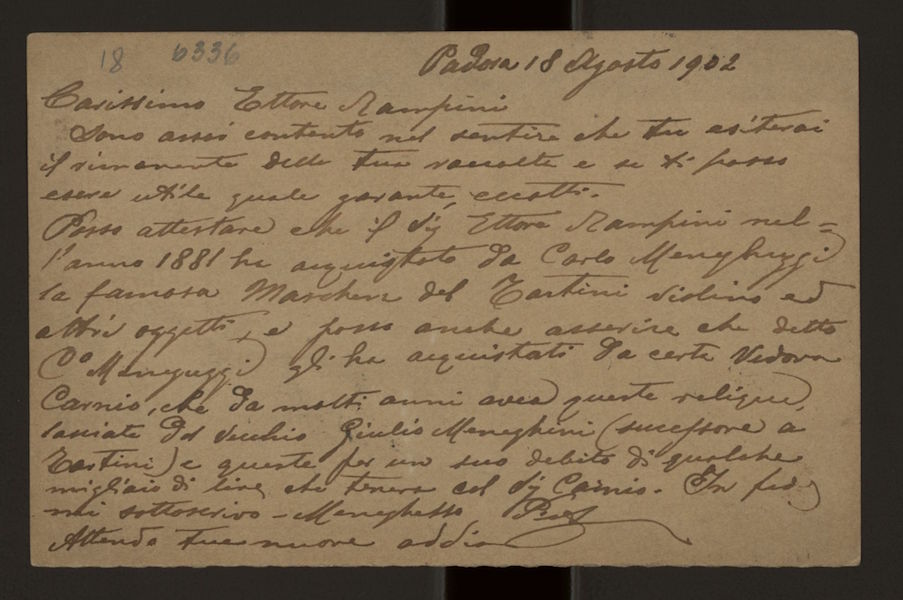 18 6336
Padova 18 Agosto 1902
Carissimo Ettore Rampini
Sono assai contento nel sentire che tu esiterai
il rimanente della tua raccolta e se ti posso
essere utile quale garante, eccotti.
Posso attestare che il Sig Ettore Rampini nel=
l'anno 1881 ha acquistato da Carlo Meneghuzzi
la famosa Marchera del Tartini violino ed
altri oggetti, e posso anche asserire che detto
Co Meneguzzi gli ha acquistati da certa Vedova
Carnio, che da molti anni avea queste relique,
lasciate dal vecchio Giulio Meneghini (sucessore a
Tartini) e queste per un suo debito di qualche
migliaio di lire che teneva col Sig Carnio. In fede
mi sottoscrivo - Meneghesso
Attendo tue nuove addio